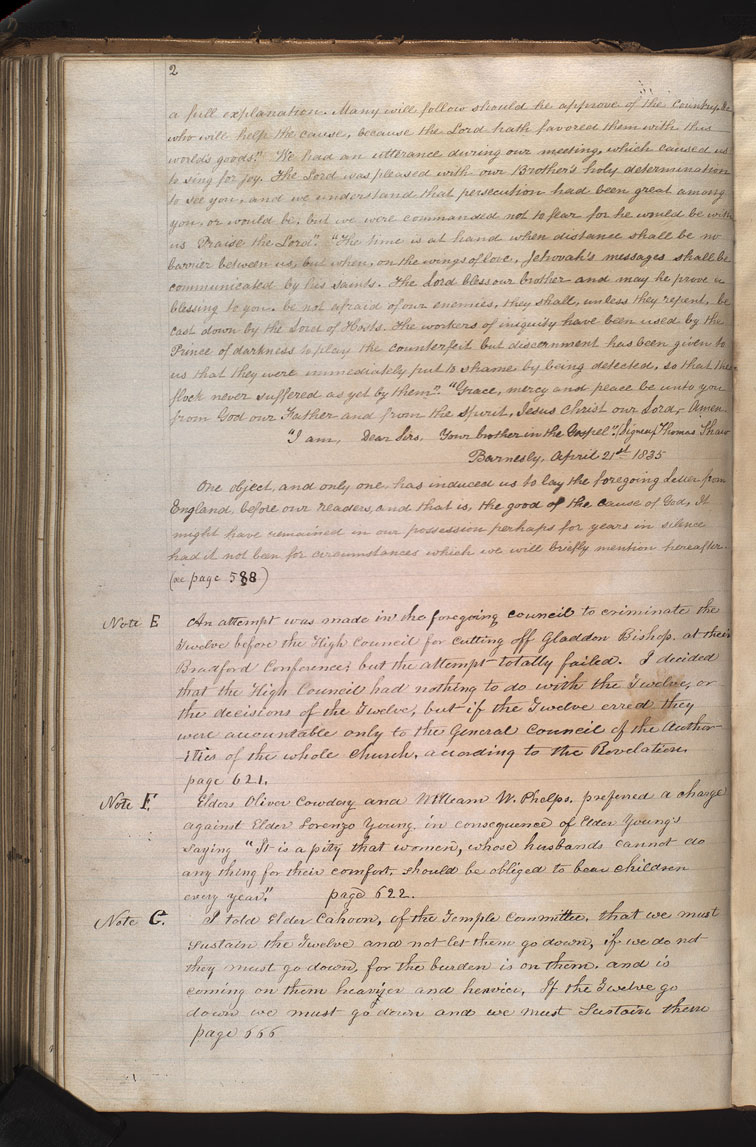 2
a full explanation. Many will follow should he approve of the Country, &c
who will help the cause, because the Lord hath favored them with this
world's goods." We had an utterance during our meeting, which caused us
to sing for joy. The Lord was pleased with our Brother's holy determination
to see you, and we understand that persecution had been great among
you, or would be; but we were commanded not to fear for he would be with
us Praise the Lord". "The time is at hand when distance shall be no
barrier between us, but when, on the wings of love, Jehovah's messages shall be
communicated by his saints. The Lord bless our brother and may he prove a
blessing to you. be not afraid of our enemies, they shall, unless they repent, be
cast down by the Lord of Hosts. The workers of iniquity have been used by the
Prince of darkness to play the counterfeit but discernment has been given to
us that they were immediately put to shame by being detected, so that the
flock never suffered as yet by them". "Grace, mercy and peace be unto you
from God our Father and from the Spirit, Jesus Christ our Lord, Amen
"I am, Dear Sirs, Your brother in the Gospel". (Signed) Thomas Shaw
Barnesly, April 21st 1835
One object, and only one, has induced us to lay the foregoing Letter from
England, before our readers, and that is, the good of the cause of God, It
might have remained in our possession perhaps for years in silence
had it not been for circumstances which we will briefly mention hereafter.
(see page 588)
Note E An attempt was made in the foregoing council to criminate the
Twelve before the High Council for cutting off Gladden Bishop. at their
Bradford Conference; but the attempt totally failed. I decided
that the High Council had nothing to do with the Twelve, or
the decisions of the Twelve, but if the Twelve erred they
were accountable only to the General Council of the Author-
ities of the whole Church, according to the Revelation.
page 621.
Note F. Elders Oliver Cowdery and William W. Phelps. preferred a charge
against Elder Lorenzo Young. in consequence of Elder Young's
saying "It is a pity that women, whose husbands cannot do
any thing for their comfort, should be obliged to bear children
every year". page 622.
Note G. I told Elder Cahoon, of the Temple Committee. that we must
Sustain the Twelve and not let them go down, if we do not
they must go down, for the burden is on them. and is
coming on them heavier and heavier, If the Twelve go
down we must go down and we must Sustain them
page 666